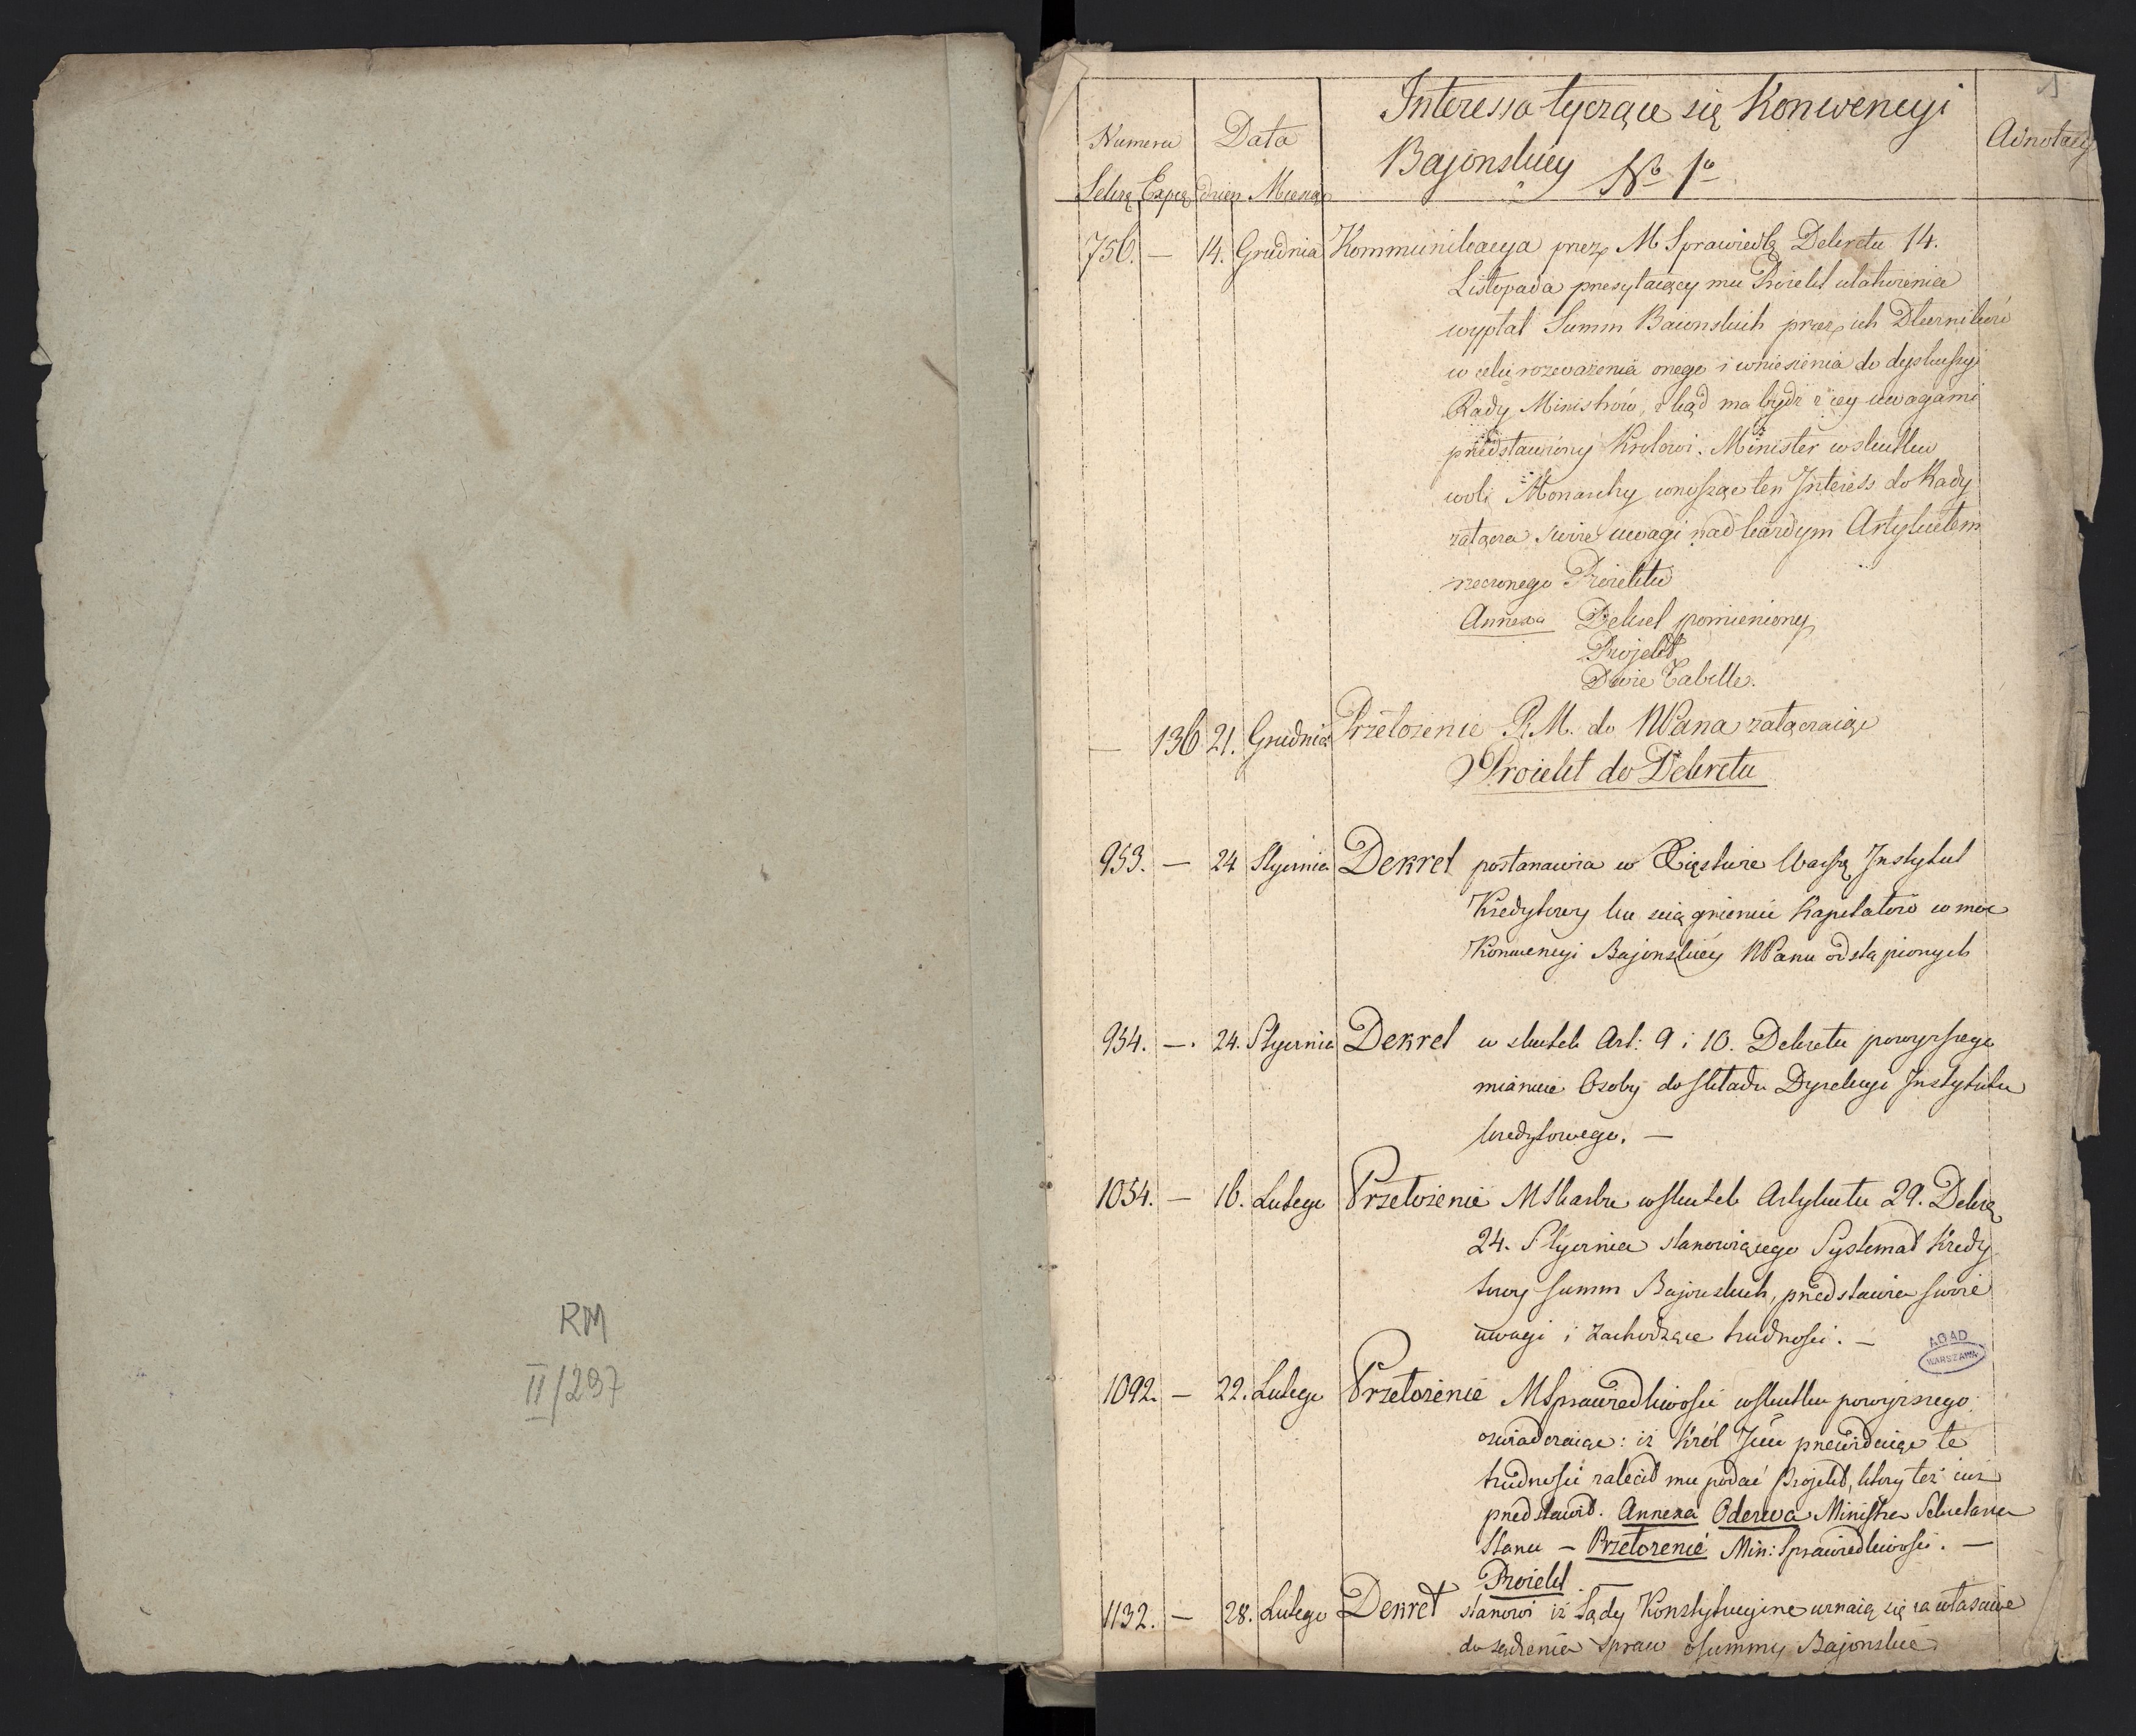 RM
II/297
1
Numera
Data
Interessa tyczące się Konwencyi
Bajonskiey No 1o
Adnotacy
Sekrą Expeą dzień Miesiąc
756. — 14. Grudnia Kommunikacya przez M Sprawiedlą Dekretu 14.
Listopada przesyłaiący mu Proiekt ułatwienia
wypłat Summ Baionskich przez ich Dłużników
w celu rozważenia onego i wniesienia do dyskussyi
Rady Ministrów, zkąd ma bydź z iey uwagami
przedstawiony Krolowi. Minister w skutku
woli Monarchy wnosząc ten Interess do Rady
załącza swoie uwagi nad każdym Artykułem
rzeczonego Proiektu
Annexa Dekret pomieniony
Projekt
Dwie Tabelle.
— 136 21. Grudnia Przełożenie R.M. do NPana załączaiąc
Proiekt do Dekretu
953. — 24 Stycznia Dekret postanawia w Xięstwie Warszą Instytut
Kredytowy ku sciągnieniu Kapitałow w moc
Konwencyi Bajonskiey NPanu odstąpionych
954. — 24. Stycznia Dekret w skutek Art: 9 i 10. Dekretu powyższego
mianuie Osoby do składu Dyrekcyi Instytutu
kredytowego. —
1054. — 16. Lutego Przełożenie MSkarbu w skutek Artykułu 29. Dekrą
24. Stycznia stanowiącego Systemat Kredy
towy summ Bajonskich, przedstawia swoie
uwagi i zachodzące trudności. —
AGAD
WARSZAWA
1092. — 22. Lutego Przełożenie MSprawiedliwości w skutku powyższego
oswiadczaiąc: iż Król Jmć przewiduiąc te
trudności zalecił mu podać Projekt, ktory też iuż
przedstawił. Annexa Odezwa Ministra Sekretarza
Stanu — Przełożenie Min: Sprawiedliwości. —
Proiekt
1132. — 28. Lutego Dekret stanowi iż Sądy Konstytucyine uznaią się za własciwe
do sądzenia spraw o summy Bajonskie